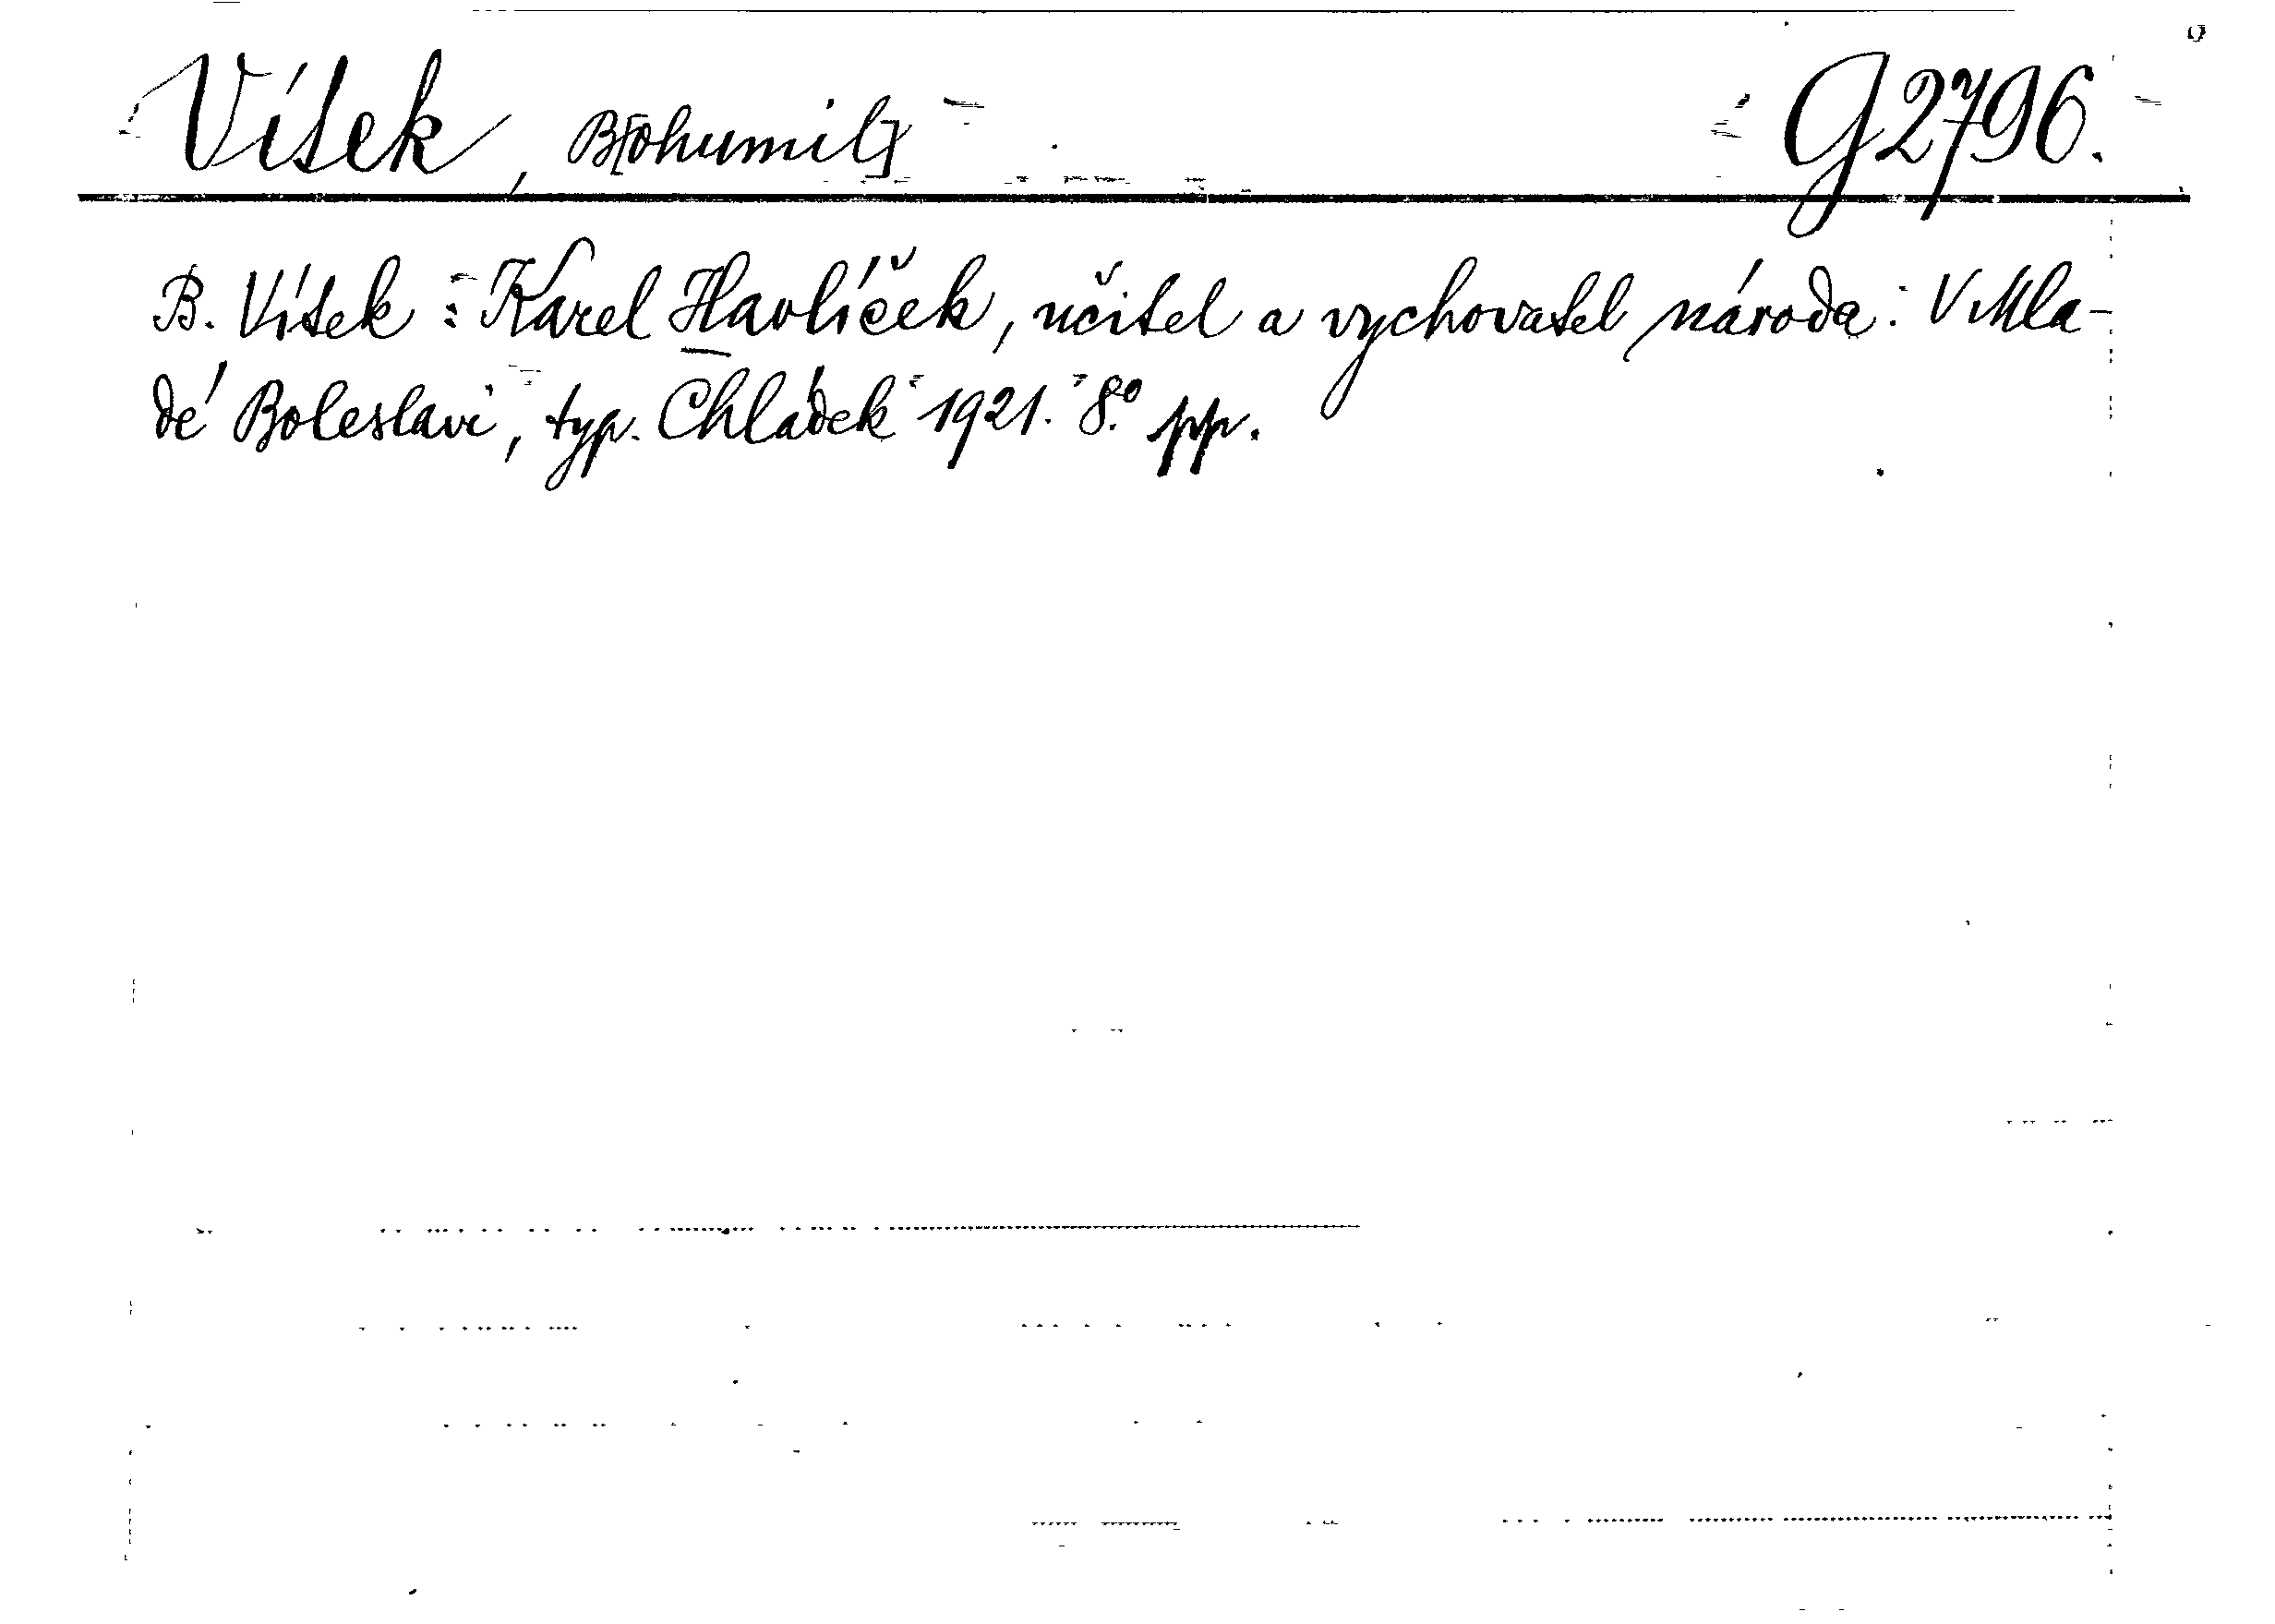 Vítek, B[ohumil] G2796.
B. Vítek : Karel Havlíček, učitel a vychovatel národa. V Mla-
dé Boleslavi, typ. Chládek 1921. 8.º pp.